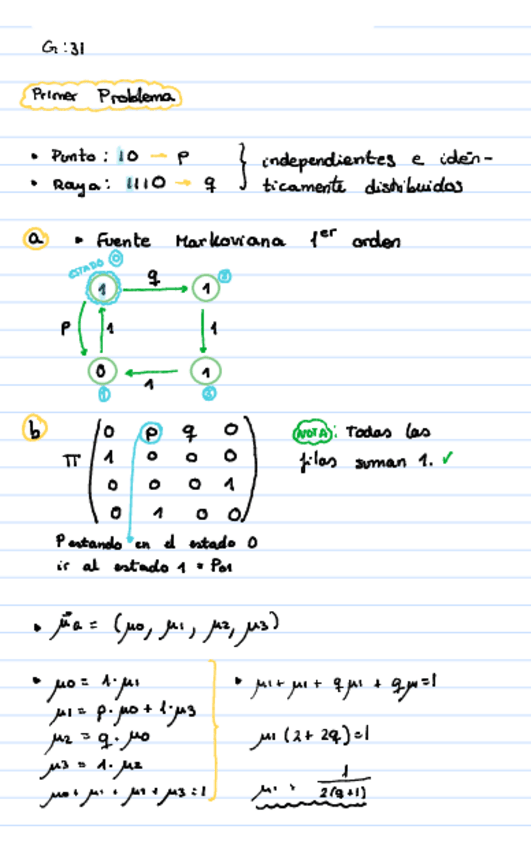 G: 31
Primer Problema
• Punto: 10 → p
• Raya: 1110 → q
} independientes e idén-
ticamente distribuidos
a • Fuente Markoviana 1er orden
ESTADO 0
1 q 1
p 1 1
0 1 1
1
b
0 p q 0
π 1 0 0 0
0 0 0 1
0 1 0 0
NOTA: Todas las
filas suman 1. ✓
P estando en el estado 0
ir al estado 1 = P01
• μa = (μ0, μ1, μ2, μ3)
• μ0 = 1·μ1
μ1 = p·μ0 + 1·μ3
μ2 = q·μ0
μ3 = 1·μ2
μ0 + μ1 + μ2 + μ3 = 1
• μ1 + μ1 + qμ1 + qμ = 1
μ1 (2 + 2q) = 1
μ1 = 1 / 2(q+1)